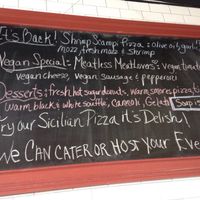 It's Back! Shrimp Scampi Pizza: olive oil, garlic
mozz, fresh mozz & Shrimp
Vegan Special: Meatless Meatlovers: vegan
vegan cheese, vegan sausage & pepperoni
Desserts: fresh hot sugar donuts, warm smores pizza,
warm black & white souffle, Cannoli, Gelato Soup is
Try our Sicilian Pizza it's Delish!
We CAN CATER or HOST Your Eve